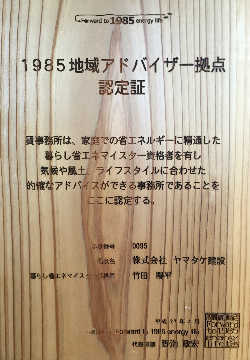 Forward to 1985 energy life
1985地域アドバイザー拠点
認定証
貴事務所は、家庭での省エネルギーに精通した
暮らし省エネマイスター資格者を有し
気候や風土、ライフスタイルに合わせた
的確なアドバイスができる事務所であることを
ここに認定する。
0095
株式会社 ヤマタケ建設
暮らし省エネマイスター
竹田
平成
Forward to 1985 energy life
代表理事 野池 政宏
Forward
to 1985
energy
life